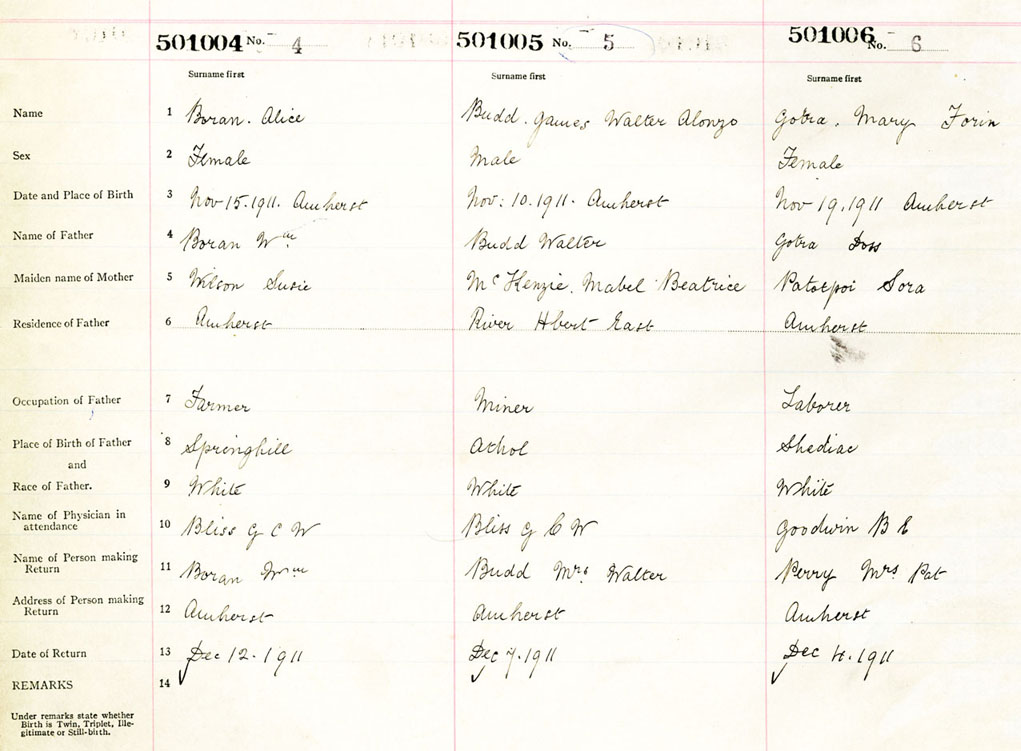 501004 No. 4 501005 No. 5 501006 No. 6
Surname first Surname first Surname first
Name 1 Boran. Alice Budd. James Walter Alonzo Gotra, Mary Forin
Sex 2 Female Male Female
Date and Place of Birth 3 Nov 15.1911. Amherst Nov: 10.1911. Amherst Nov 19,1911 Amherst
Name of Father 4 Boran Wm Budd Walter Gotra Doss
Maiden name of Mother 5 Wilson Susie McKenzie, Mabel Beatrice Sora
Residence of Father 6 Amherst River Hbert East Amherst
Occupation of Father 7 Farmer Miner Laborer
Place of Birth of Father 8 Springhill Athol Shediac
and
Race of Father. 9 White White White
Name of Physician in
attendance 10 Bliss G C W Bliss G C W Goodwin B E
Name of Person making
Return 11 Boran Wm Budd Mrs Walter Perry Mrs Pat
Address of Person making
Return 12 Amherst Amherst Amherst
Date of Return 13 Dec 12.1911 Dec 7.1911 Dec 4.1911
REMARKS 14
Under remarks state whether
Birth is Twin, Triplet, Ille-
gitimate or Still-birth.